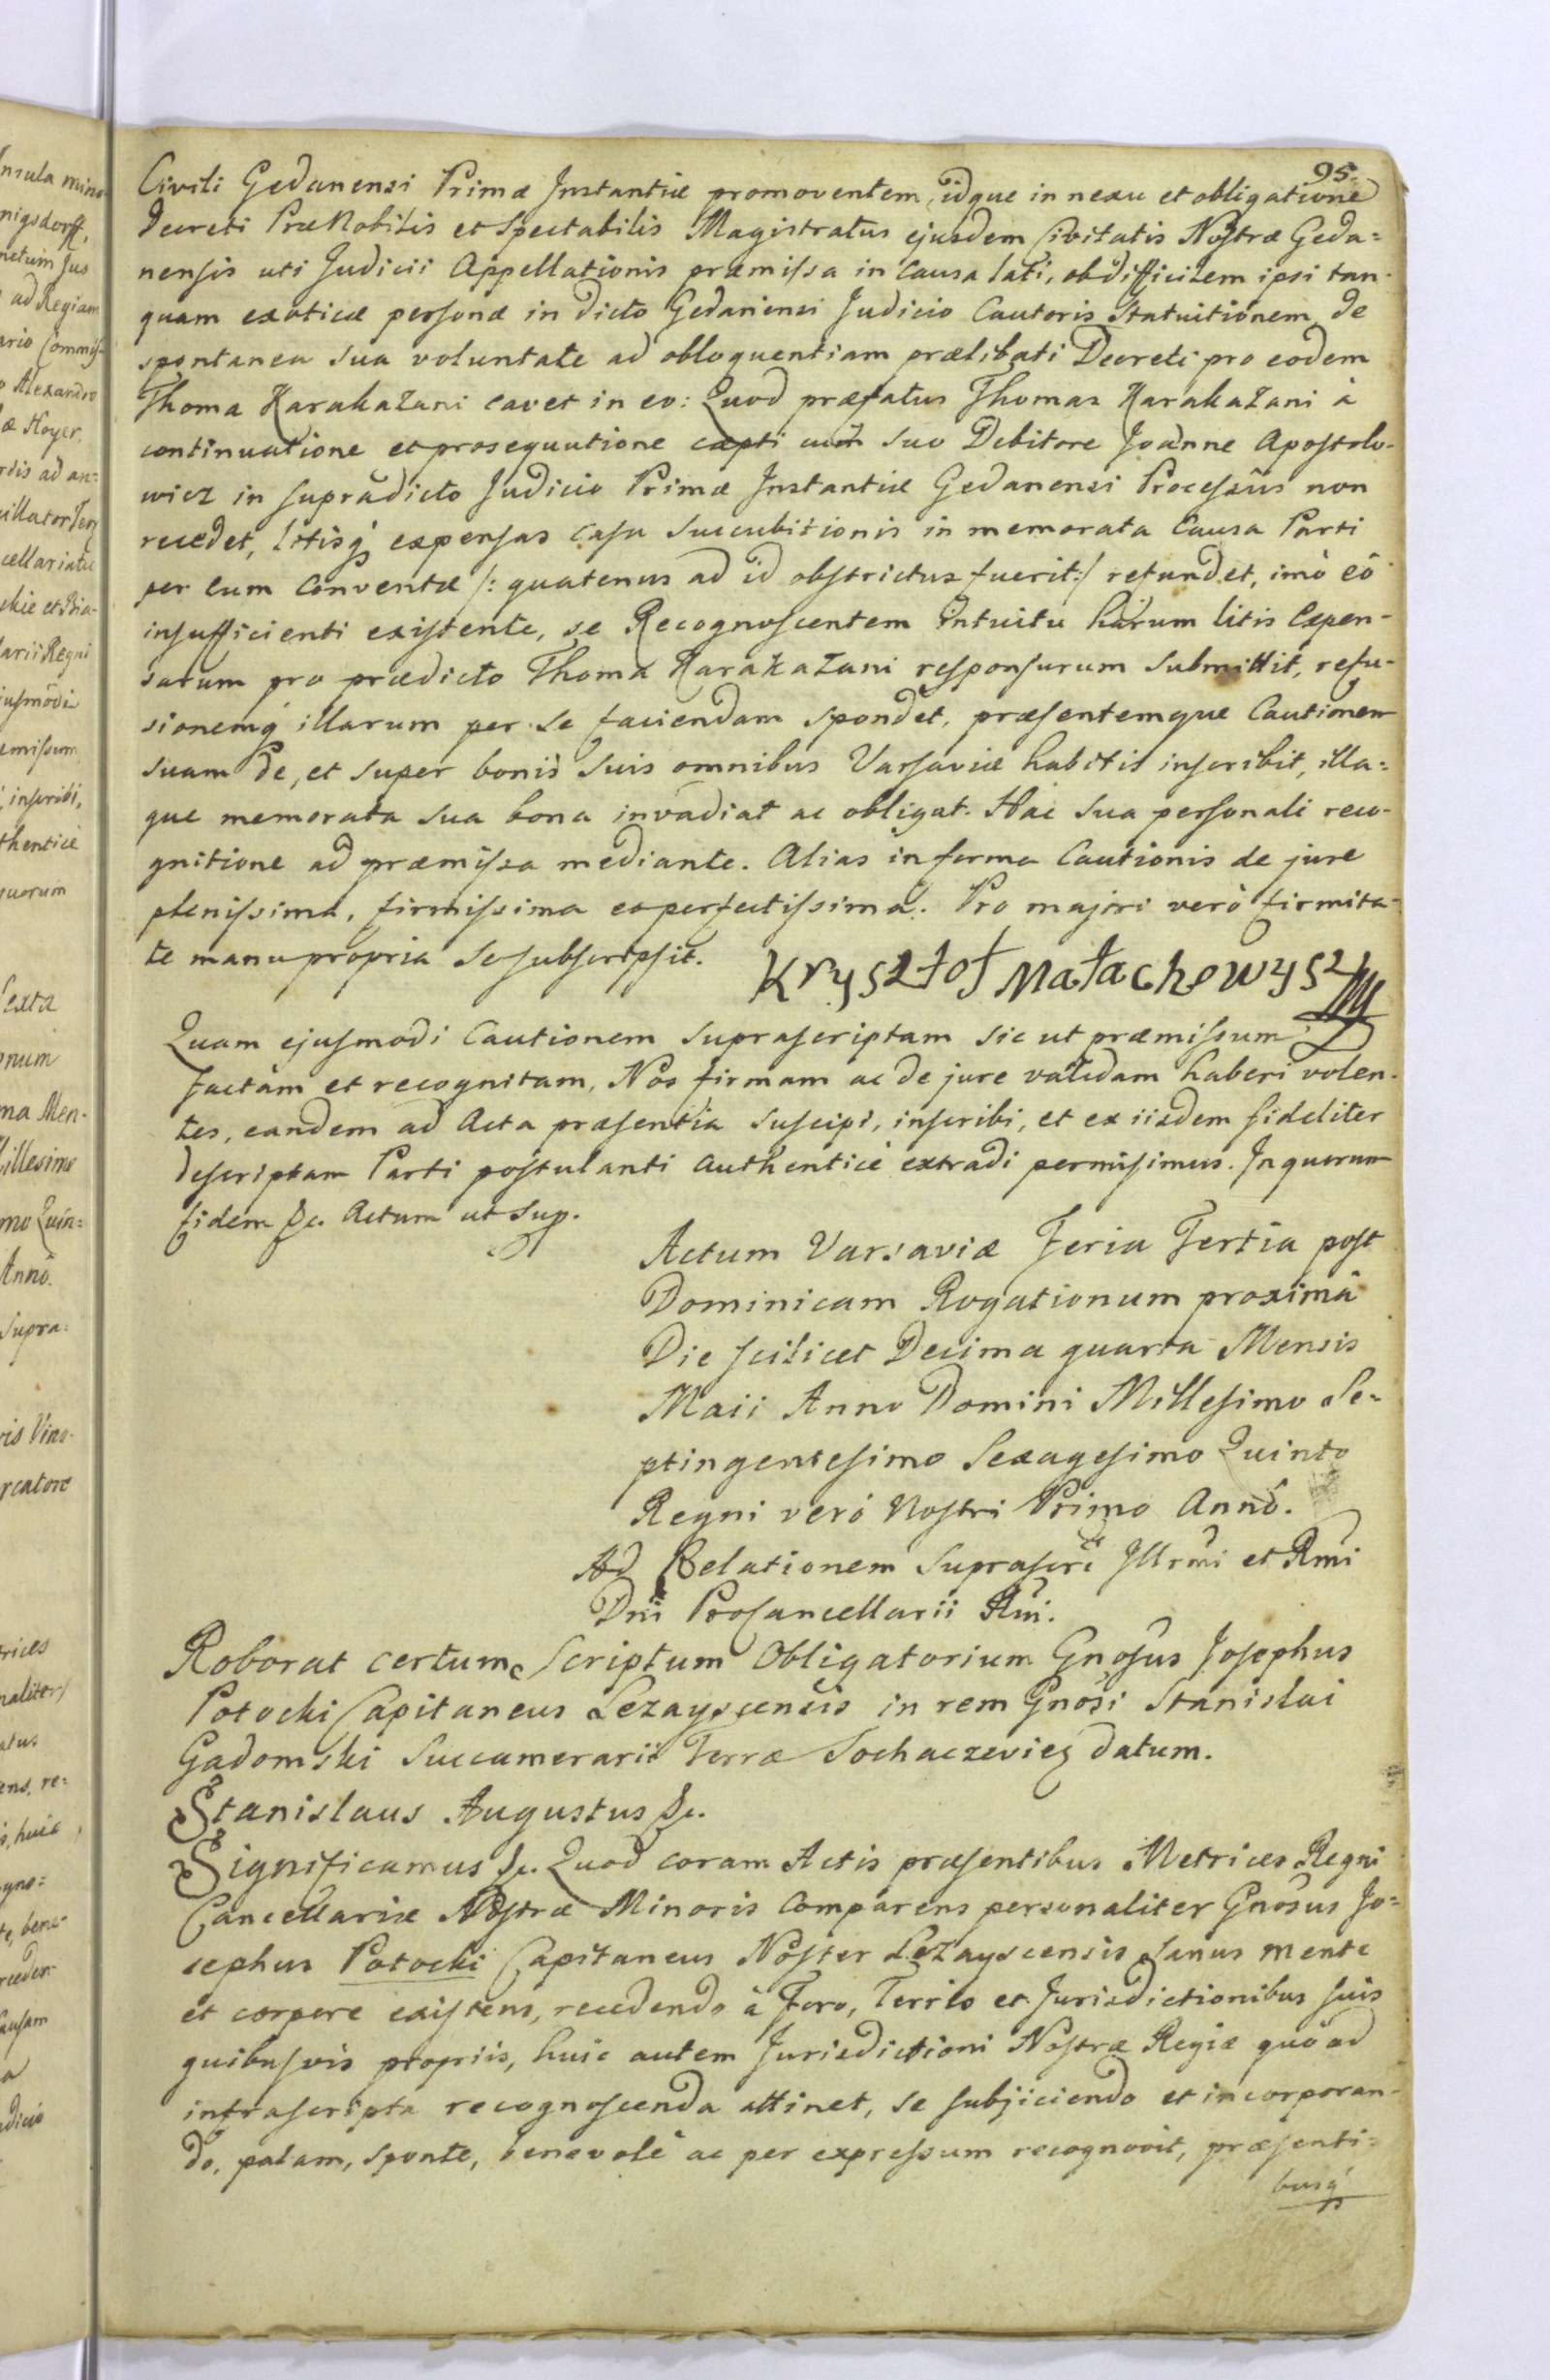 95.
Civili Gedanensi Primæ Instantiæ promoventem, idque in nexu et obligatione
Decreti PræNobilis et Spectabilis Magistratus ejusdem Civitatis Nostræ Geda=
nensis uti Judicii Appellationis præmissa in Causa lati, ob difficilem ipsi tan-
quam exoticæ personæ in dicto Gedanensi Judicio Cautoris Statuitionem, de
spontanea sua voluntate ad obloquentiam prælibati Decreti pro eodem
Thoma Karakazani cavet in eo: Quod præfatus Thomas Karakazani à
continuatione et prosequutione cæpti cum suo Debitore Joanne Apostolo-
wicz in supradicto Judicio Primæ Instantiæ Gedanensi Processûs non
recedet, litisq expensas casu Succubitionis in memorata Causa Parti
per eum Conventæ /: quatenus ad id obstrictus fuerit :/ refundet, imò eô
insufficienti existente, se Recognoscentem intuitu harum litis Expen-
sarum pro prædicto Thoma Karakazani responsurum submittit, refu-
sionemq illarum per se faciendam spondet, præsentemque Cautionem
suam de, et super bonis suis omnibus Varsaviæ habitis inscribit, illa=
que memorata sua bona invadiat ac obligat. Hac sua personali reco-
gnitione ad præmissa mediante. Alias in forma Cautionis de jure
plenissima, firmissima et perfectissima. Pro majori verò firmita-
te manu propria se subscripsit. Krysztof Małachowysz
Quam ejusmodi Cautionem suprascriptam sic ut præmissum
factam et recognitam, Nos firmam ac de jure validam haberi volen-
tes, eandem ad Acta præsentia suscipi, inscribi, et ex iisdem fideliter
descriptam Parti postulanti authenticè extradi permisimus. In quorum
fidem &c. Actum ut sup.
Actum Varsaviæ Feria Tertia post
Dominicam Rogationum proximâ
Die scilicet Decima quarta Mensis
Maii Anno Domini Millesimo Se=
ptingentesimo Sexagesimo Quinto
Regni verò Nostri Primo Annô.
Ad Relationem suprascri Illrmi et Rmi
Dni ProCancellarii Rni.
Roborat certum Scriptum Obligatorium Gnosus Josephus
Potocki Capitaneus Lezayscensis in rem Gnosi Stanislai
Gadomski Succamerarii Terræ Sochaczevien datum.
Stanislaus Augustus &c.
Significamus &c. Quod coram Actis præsentibus Metrices Regni
Cancellariæ Nostræ Minoris Comparens personaliter Gnosus Jo=
sephus Potocki Capitaneus Noster Lezayscensis sanus mente
et corpore existens, recedendo à Foro, Terris et Jurisdictionibus suis
quibusvis propriis, huic autem Jurisdictioni Nostræ Regiæ quò ad
infrascripta recognoscenda attinet, se subjiciendo et incorporan-
do, palam, sponte, benevolè ac per expressum recognovit, præsenti=
busq